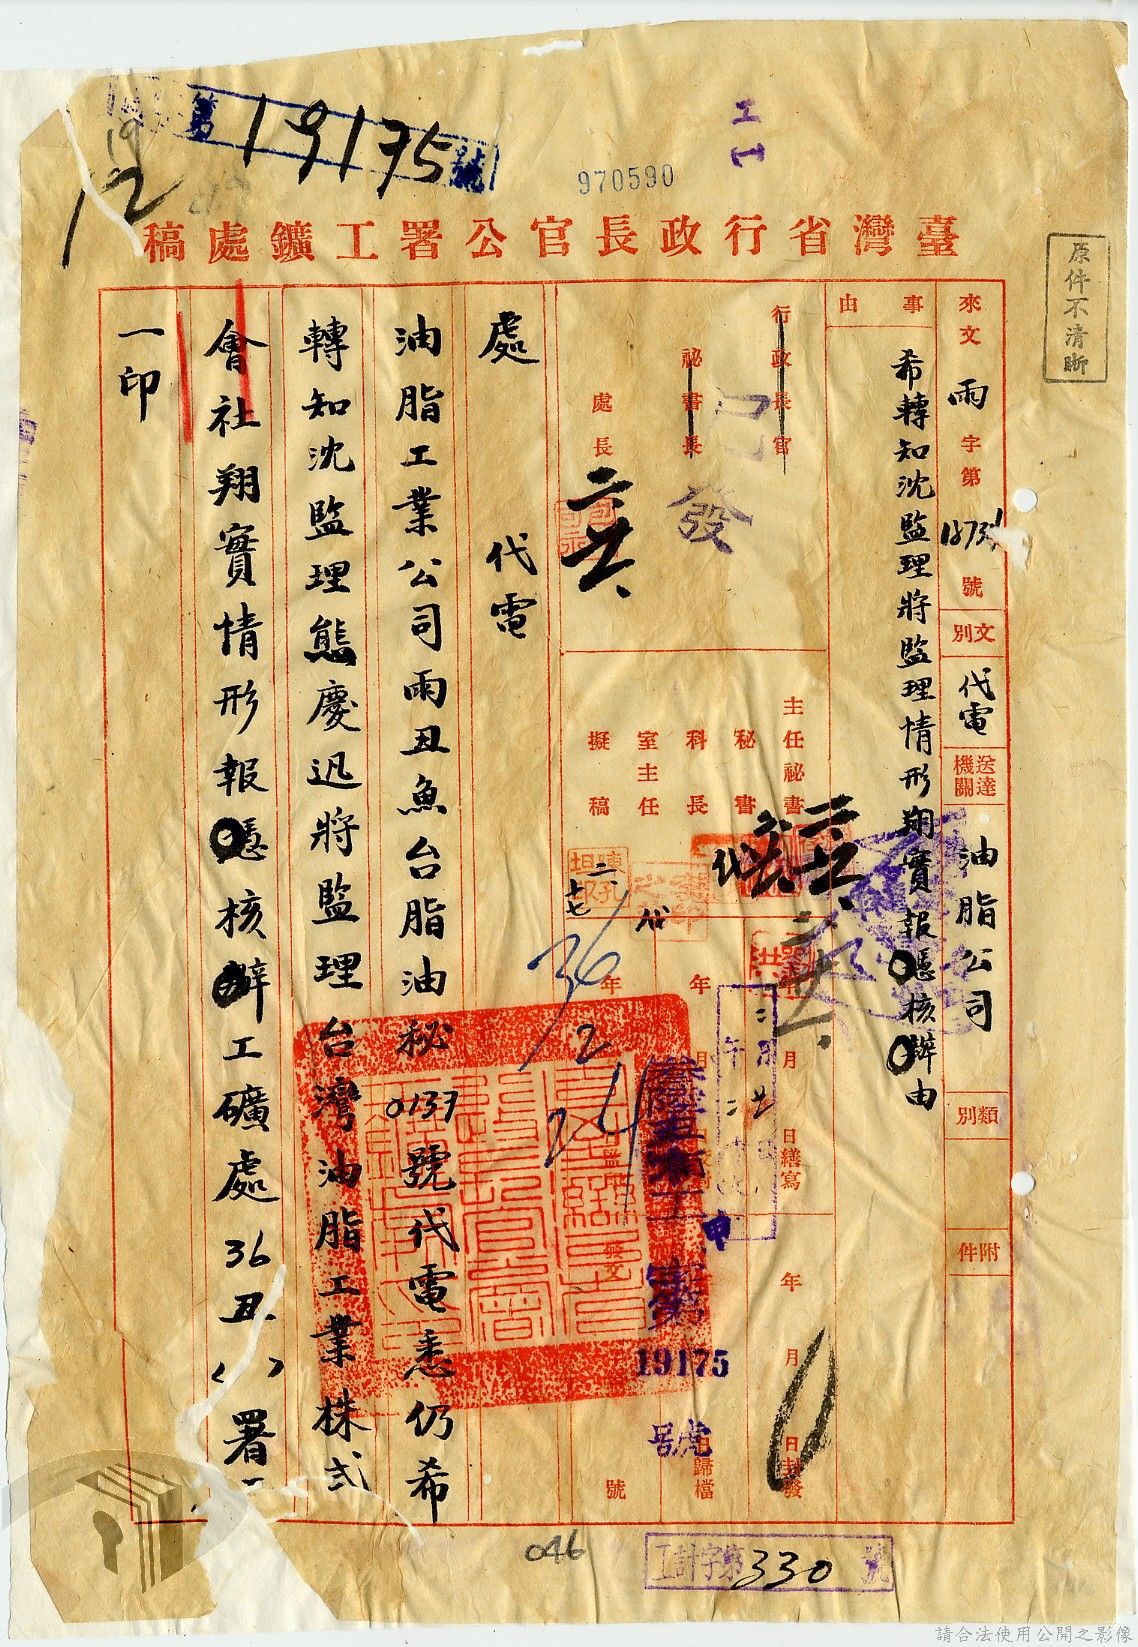 第19175號
19
12
970590
工
工
原件不清晰
臺灣省行政長官公署工鑛處稿
來文 雨字第 號
文別 代電
送達機關 油脂公司
類別
附件
事由
希轉知沈監理將監理情形翔實報憑核辦由
行政長官
秘書長
處長
已發
主任秘書
秘書
科長
室主任
擬稿
代
36年2月24
月 日繕寫
年 月 日封發
日歸檔
發文
申
19175
號
號
處 代電
油脂工業公司雨丑魚台脂油秘0137號代電悉仍希
轉知沈監理態慶迅將監理台灣油脂工業株式
會社翔實情形報憑核辦工礦處36丑( )署
一印
046
工計字第330號
請合法使用公開之影像